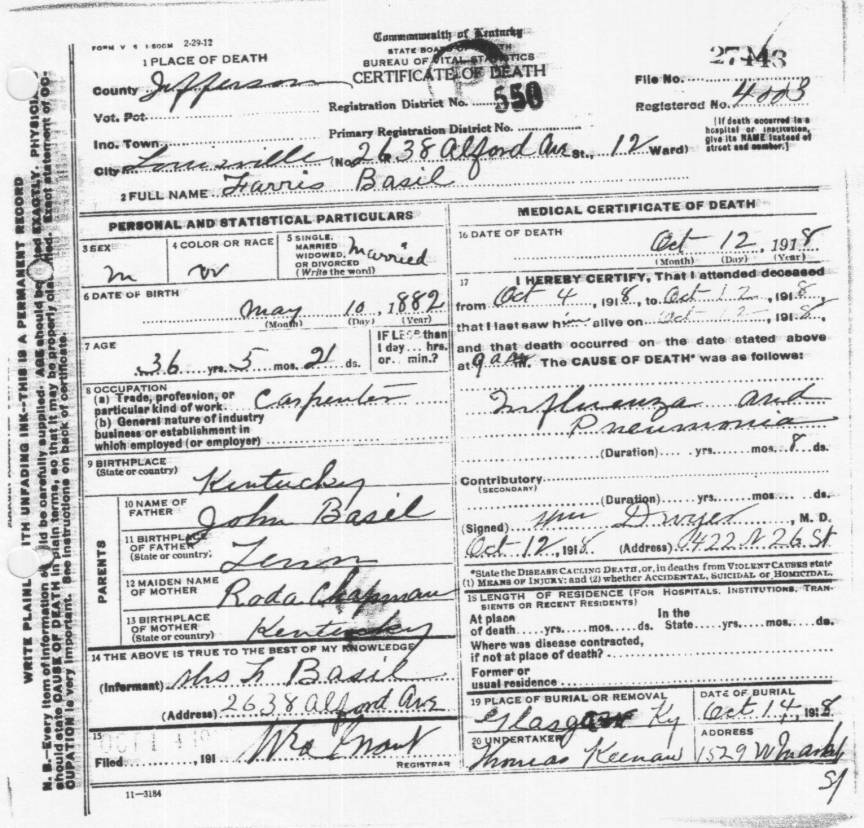 FORM V. S. 1-500M 2-29-12
Commonwealth of Kentucky
STATE BOARD OF HEALTH
BUREAU OF VITAL STATISTICS
CERTIFICATE OF DEATH
27443
File No.
Registered No. 4003
[If death occurred in a hospital or institution, give its NAME instead of street and number.]
1 PLACE OF DEATH
County Jefferson
Vot. Pct.
Registration District No. 550
Inc. Town
Primary Registration District No.
City Louisville (No. 2638 Alford Ave St., 12 Ward)
2 FULL NAME Farris Basil
PERSONAL AND STATISTICAL PARTICULARS
3 SEX
m
4 COLOR OR RACE
w
5 SINGLE, MARRIED WIDOWED, OR DIVORCED (Write the word)
Married
6 DATE OF BIRTH
May 10, 1882
(Month) (Day) (Year)
7 AGE
36 yrs. 5 mos. 2 ds.
IF LESS than
1 day ... hrs.
or ... min.?
8 OCCUPATION
(a) Trade, profession, or
particular kind of work Carpenter
(b) General nature of industry
business or establishment in
which employed (or employer)
9 BIRTHPLACE
(State or country)
Kentucky
PARENTS
10 NAME OF
FATHER John Basil
11 BIRTHPLACE
OF FATHER
(State or country) Tenn
12 MAIDEN NAME
OF MOTHER Roda Chapman
13 BIRTHPLACE
OF MOTHER
(State or country) Kentucky
14 THE ABOVE IS TRUE TO THE BEST OF MY KNOWLEDGE
(Informant) Mrs F. Basil
(Address) 2638 Alford Ave
15
OCT 14
Filed, 191
REGISTRAR
11-3184
MEDICAL CERTIFICATE OF DEATH
16 DATE OF DEATH
Oct 12, 1918
(Month) (Day) (Year)
17 I HEREBY CERTIFY, That I attended deceased
from Oct 4, 1918, to Oct 12, 1918,
that I last saw him alive on Oct 12, 1918,
and that death occurred on the date stated above
at 9 am. The CAUSE OF DEATH* was as follows:
Influenza and
Pneumonia
(Duration) yrs. mos. 8 ds.
Contributory
(SECONDARY)
(Duration) yrs. mos. ds.
(Signed) Wm Dwyer, M. D.
Oct 12, 1918 (Address) 422 N 26 St
*State the DISEASE CAUSING DEATH, or, in deaths from VIOLENT CAUSES state
(1) MEANS OF INJURY; and (2) whether ACCIDENTAL, SUICIDAL or HOMICIDAL.
18 LENGTH OF RESIDENCE (FOR HOSPITALS, INSTITUTIONS, TRAN-
SIENTS OR RECENT RESIDENTS)
At place In the
of death yrs. mos. ds. State yrs. mos. ds.
Where was disease contracted,
if not at place of death?
Former or
usual residence
19 PLACE OF BURIAL OR REMOVAL
Glasgow Ky
DATE OF BURIAL
Oct 14, 1918
20 UNDERTAKER
Thomas Keenan
ADDRESS
1529 W Market
St
WRITE PLAINLY WITH UNFADING INK--THIS IS A PERMANENT RECORD
N. B.--Every item of information should be carefully supplied. AGE should be stated EXACTLY. PHYSICIANS
should state CAUSE OF DEATH in plain terms, so that it may be properly classified. Exact statement of OC-
CUPATION is very important. See instructions on back of certificate.